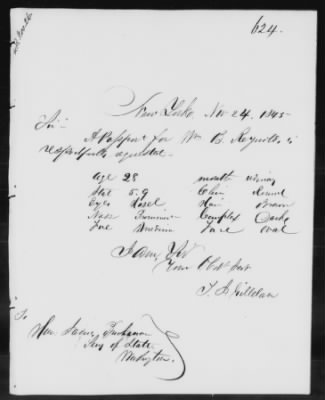 624.
New York, Nov 24, 1845
Sir
A Passport for Wm B. Reynolds is
respectfully requested.
Age 28 mouth
Stat 5.9 Chin Round
Eyes Hasel Hair Brown
Nose Complex Dark
Face Oval
I am, Yr
Your Obt Svt
To
Hon James Buchanan
Secy of State
Washington